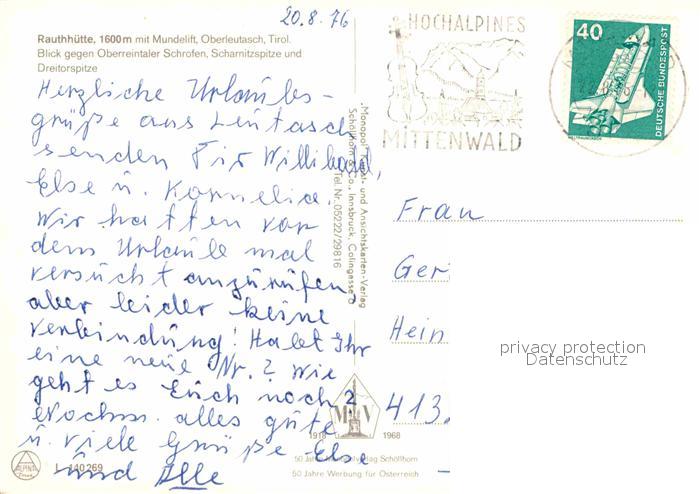 20.8.76
Rauthhütte, 1600m mit Mundelift, Oberleutasch, Tirol.
Blick gegen Oberreintaler Schrofen, Scharnitzspitze und
Dreitorspitze
Herzliche Urlaubs-
grüße aus Leutasch
senden Dir Willibald,
Else u. Kornelia.
Wir hatten vor
dem Urlaub mal
versucht anzurufen,
aber leider keine
Verbindung! Habt Ihr
eine neue Nr.? Wie
geht es Euch noch?
Nochm. alles gute
u. viele Grüße Else
und Alle
"Monopol" Kunst- und Ansichtskarten-Verlag
Schöllhorn & Co., Innsbruck, Colingasse
Tel. Nr. 05222/29816
HOCHALPINES
MITTENWALD
40
DEUTSCHE BUNDESPOST
Frau
Ger
Hein
413
privacy protection
Datenschutz
M V
1918 1968
50 Jahre Verlag Schöllhorn
50 Jahre Werbung für Österreich
ALPINA
L 140269